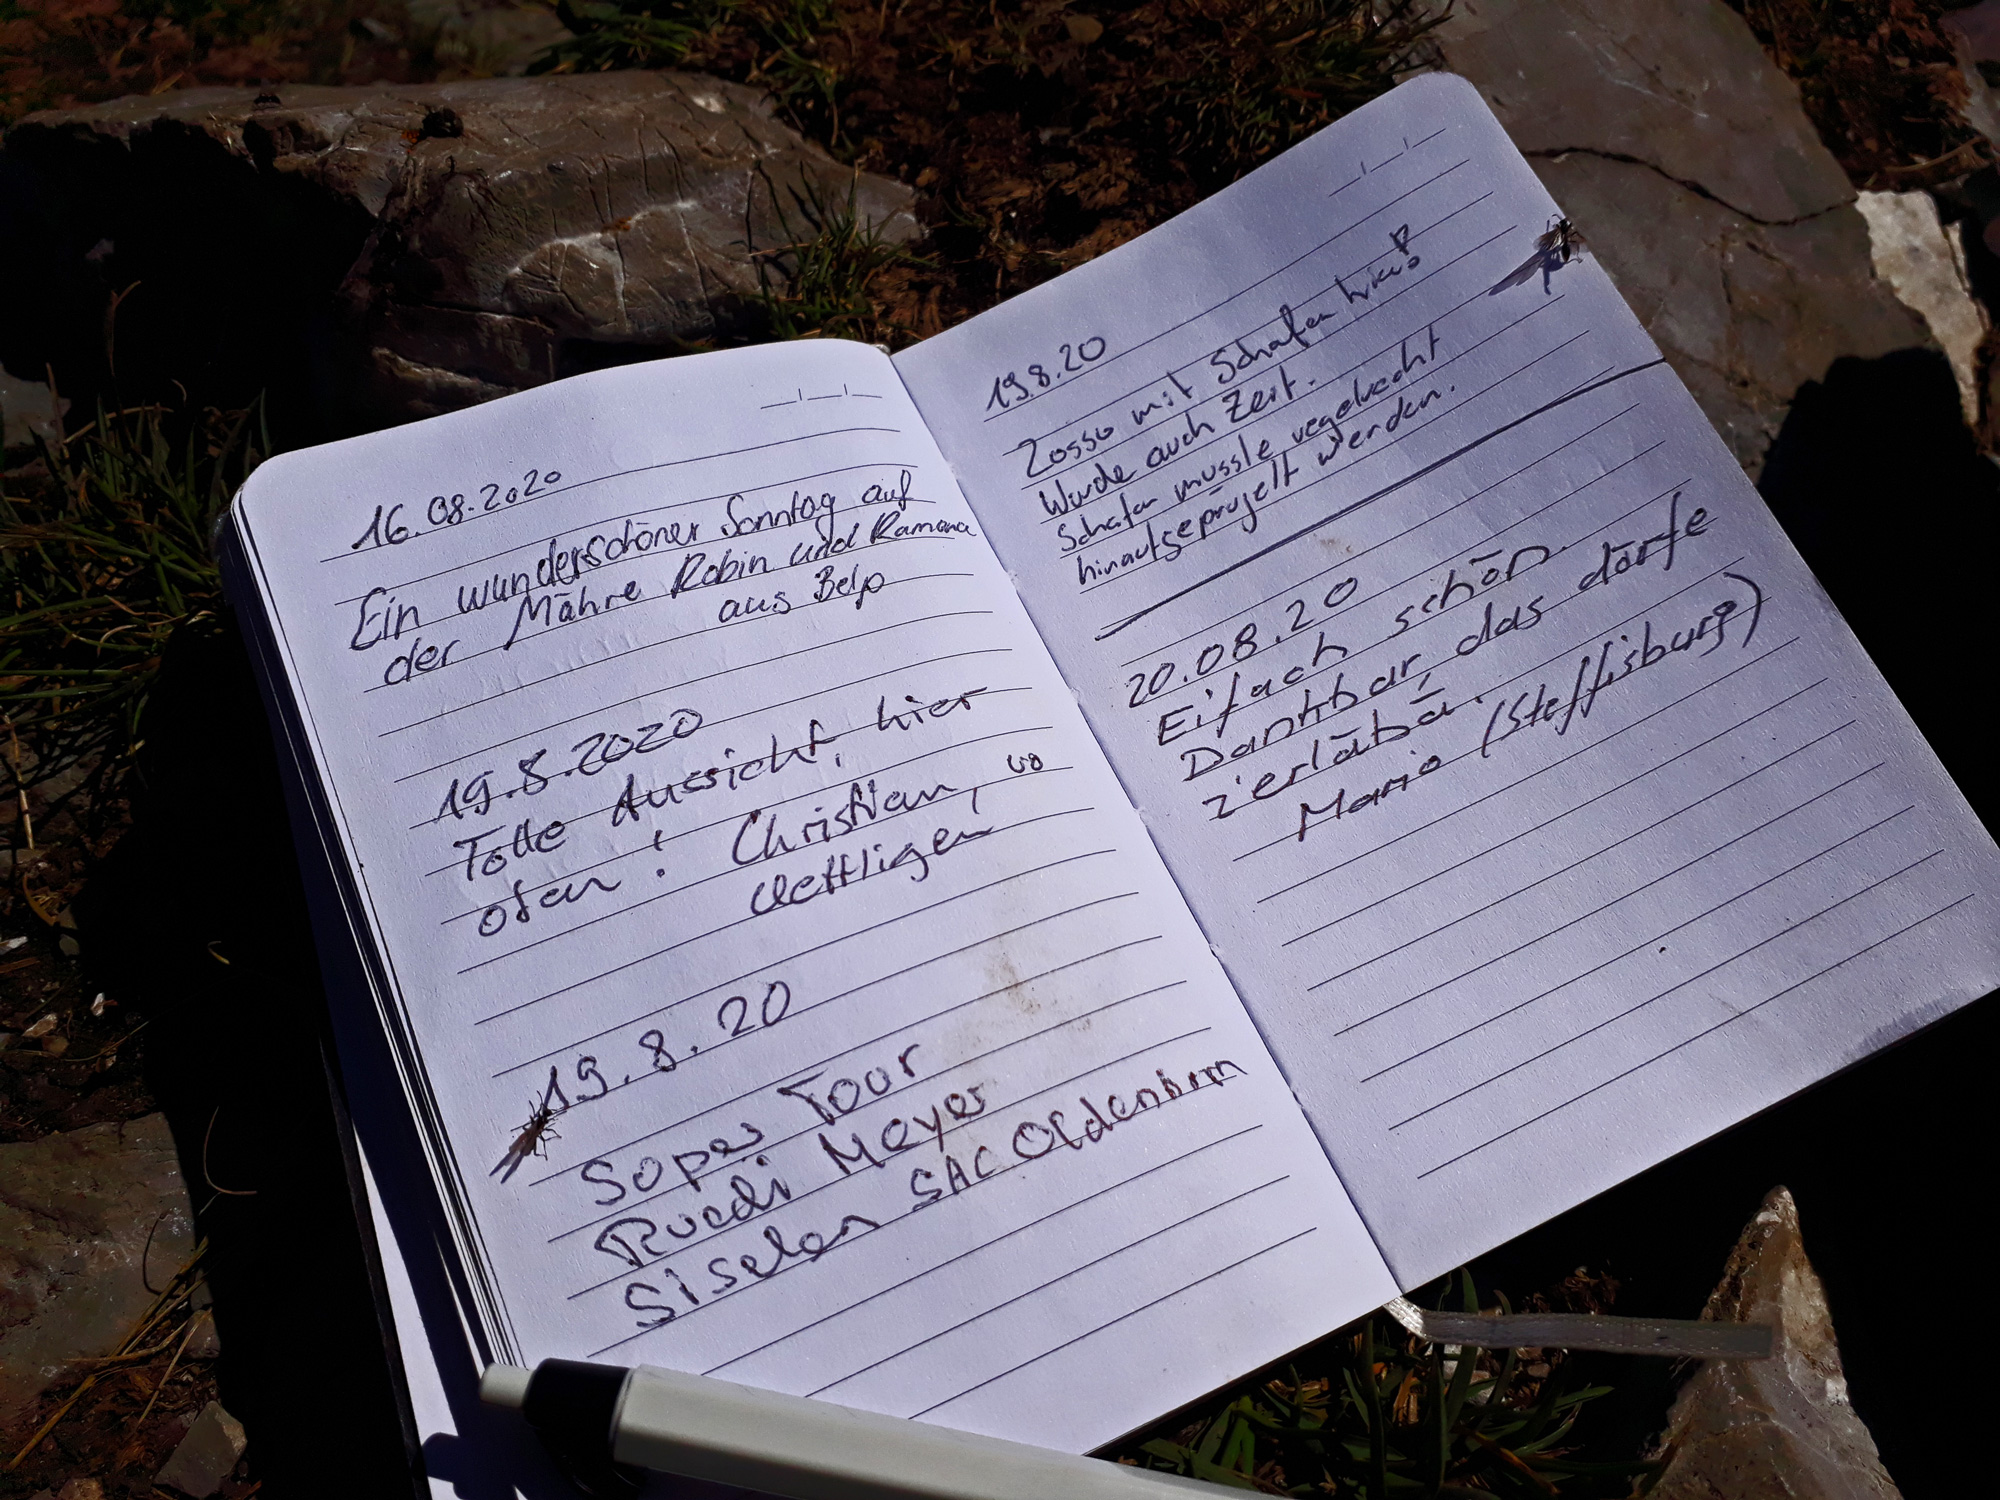 16.08.2020
Ein wunderschöner Sonntag auf
der Mähre Robin und Ramona
aus Belp
19.8.2020
Tolle Aussicht, hier
oben! Christian, vo
Uettligen
19.8.20
Soper Tour
Ruedi Meyer
Siselen SAC Oldenhorn
19.8.20
Zosso mit Schafen hier!
Wurde auch Zeit.
Schafen mussle regelrecht
hinaufgeprügelt werden.
20.08.20
Eifach schön.
Dankbar, das dörfe
z'erläbä.
Mario (Steffisburg)